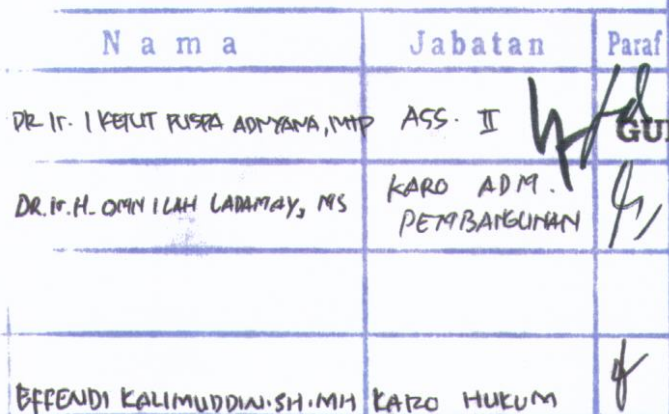 Nama Jabatan Paraf
DR. Ir. I KETUT PUSPA ADNYANA, MTP ASS. II GU
DR. Ir. H. OMN ILAH LADAMAY, MS KARO ADM.
PEMBANGUNAN
EFFENDI KALIMUDDIN.SH.MH KARO HUKUM